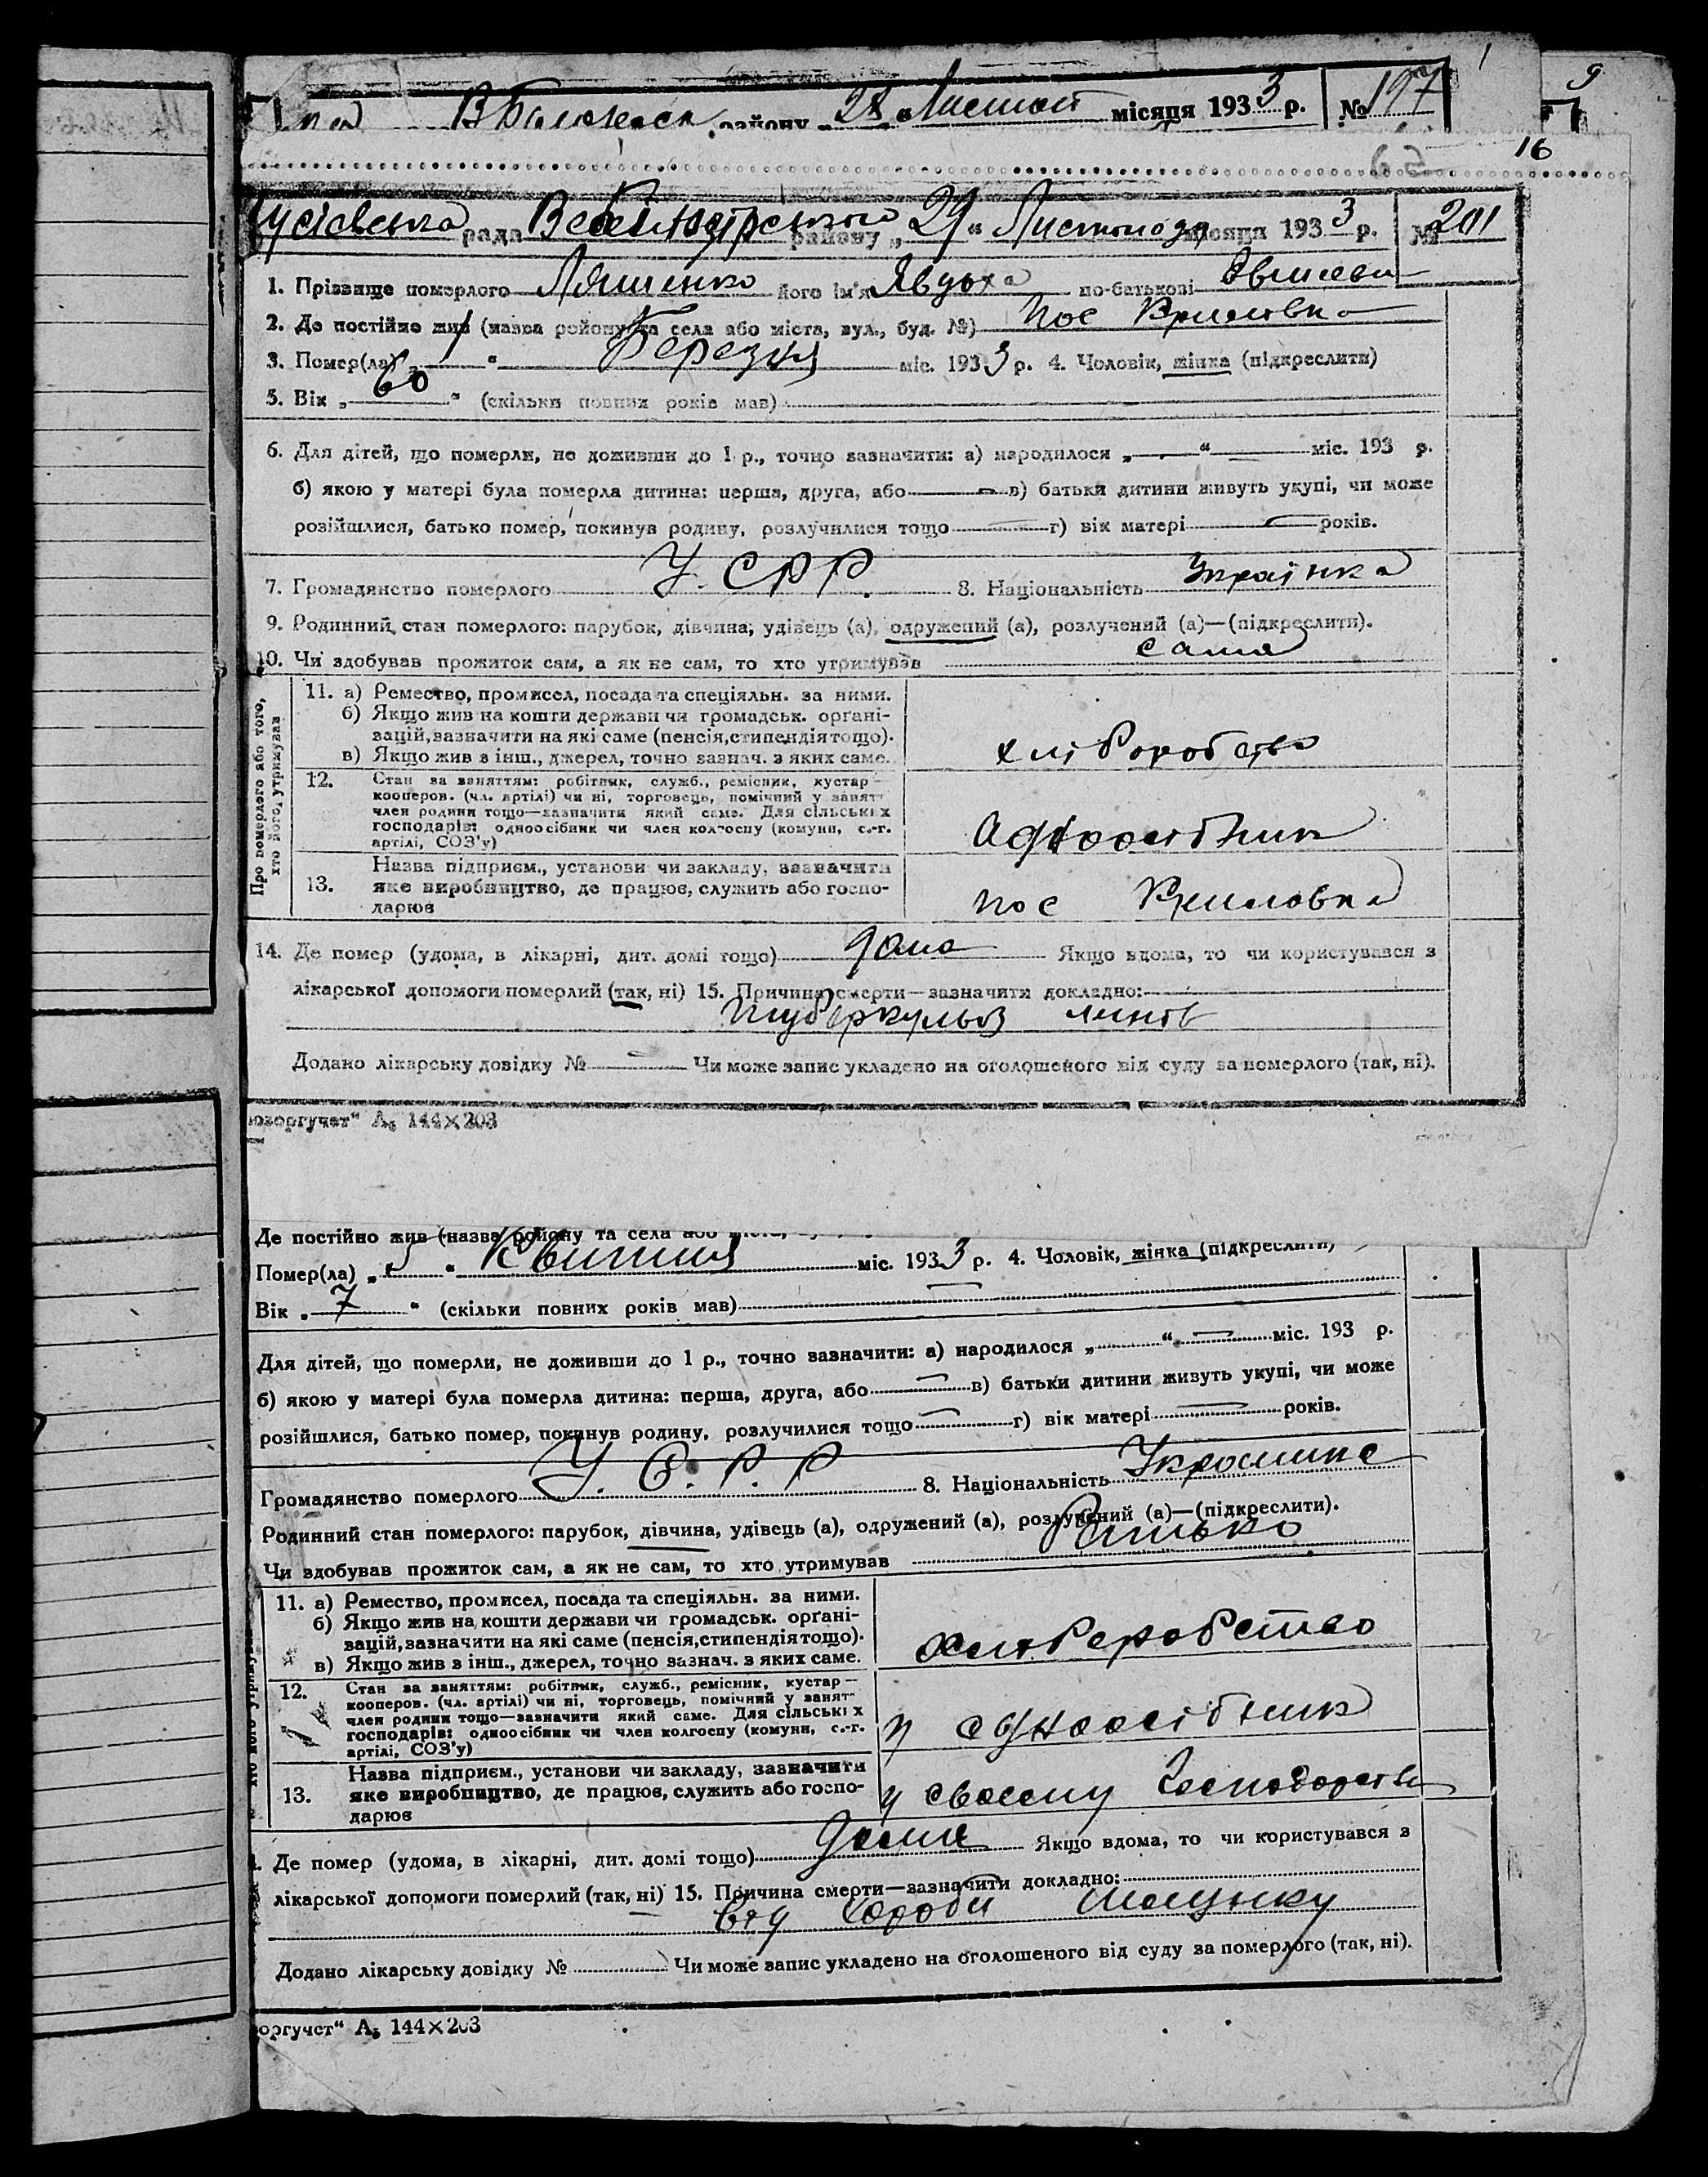 района „28“ Листоп місяця 1933 р. № 197
1
9
16
рада району „29“ Листопада місяця 1933 р. № 201
1. Прізвище померлого Ляшенко його ім'я Явдоха по-батькові
2. Де постійно жив (назва району та села або міста, вул., буд. №) пос
3. Помер(ла) „1“ Березня міс. 1933 р. 4. Чоловік, жінка (підкреслити)
5. Вік „60“ (скільки повних років мав)
6. Для дітей, що померли, не доживши до 1 р., точно зазначити: а) народилося „ “ міс. 193 р.
б) якою у матері була померла дитина: перша, друга, або в) батьки дитини живуть укупі, чи може
розійшлися, батько помер, покинув родину, розлучилися тощо г) вік матері років.
7. Громадянство померлого У.СРР. 8. Національність Українка
9. Родинний стан померлого: парубок, дівчина, удівець (а), одружений (а), розлучений (а)—(підкреслити).
10. Чи здобував прожиток сам, а як не сам, то хто утримував сама
Про померлого або того, хто його утримував
11. а) Ремество, промисел, посада та спеціяльн. за ними.
б) Якщо жив на кошти держави чи громадськ. орґані-
зацій, зазначити на які саме (пенсія, стипендія тощо).
в) Якщо жив з інш., джерел, точно зазнач. з яких саме.
хліборобство
12. Стан за заняттям: робітник, служб., ремісник, кустар—
кооперов. (чл. артілі) чи ні, торговець, помічний у занят—
член родини тощо—зазначити який саме. Для сільських
господарів: одноосібник чи член колгоспу (комуни, с.-г.
артілі, СОЗ'у)
Адноосібник
13. Назва підприєм., установи чи закладу, зазначити
яке виробництво, де працює, служить або госпо-
дарює
пос
14. Де помер (удома, в лікарні, дит. домі тощо) дома Якщо вдома, то чи користувався з
лікарської допомоги померлий (так, ні) 15. Причина смерти—зазначити докладно:
туберкульоз
Додано лікарську довідку № Чи може запис укладено на оголошеного від суду за померлого (так, ні).
оргучет“ А₅ 144×203
Де постійно жив (назва району та села або
Помер(ла) „5“ Квитня міс. 1933 р. 4. Чоловік, жінка (підкреслити)
Вік „7“ (скільки повних років мав)
Для дітей, що померли, не доживши до 1 р., точно зазначити: а) народилося „ “ міс. 193 р.
б) якою у матері була померла дитина: перша, друга, або в) батьки дитини живуть укупі, чи може
розійшлися, батько помер, покинув родину, розлучилися тощо г) вік матері років.
Громадянство померлого У.С.Р.Р 8. Національність
Родинний стан померлого: парубок, дівчина, удівець (а), одружений (а), розлучений (а)—(підкреслити).
Чи здобував прожиток сам, а як не сам, то хто утримував Батько
11. а) Ремество, промисел, посада та спеціяльн. за ними.
б) Якщо жив на кошти держави чи громадськ. орґані-
зацій, зазначити на які саме (пенсія, стипендія тощо).
в) Якщо жив з інш., джерел, точно зазнач. з яких саме.
хліборобство
12. Стан за заняттям: робітник, служб., ремісник, кустар—
кооперов. (чл. артілі) чи ні, торговець, помічний у занят—
член родини тощо—зазначити який саме. Для сільських
господарів: одноосібник чи член колгоспу (комуни, с.-г.
артілі, СОЗ'у)
одноосібник
13. Назва підприєм., установи чи закладу, зазначити
яке виробництво, де працює, служить або госпо-
дарює
у своему Господарстві
Де помер (удома, в лікарні, дит. домі тощо) дома Якщо вдома, то чи користувався з
лікарської допомоги померлий (так, ні) 15. Причина смерти—зазначити докладно:
від хороби шлунку
Додано лікарську довідку № Чи може запис укладено на оголошеного від суду за померлого (так, ні).
оргучет“ А₅ 144×203